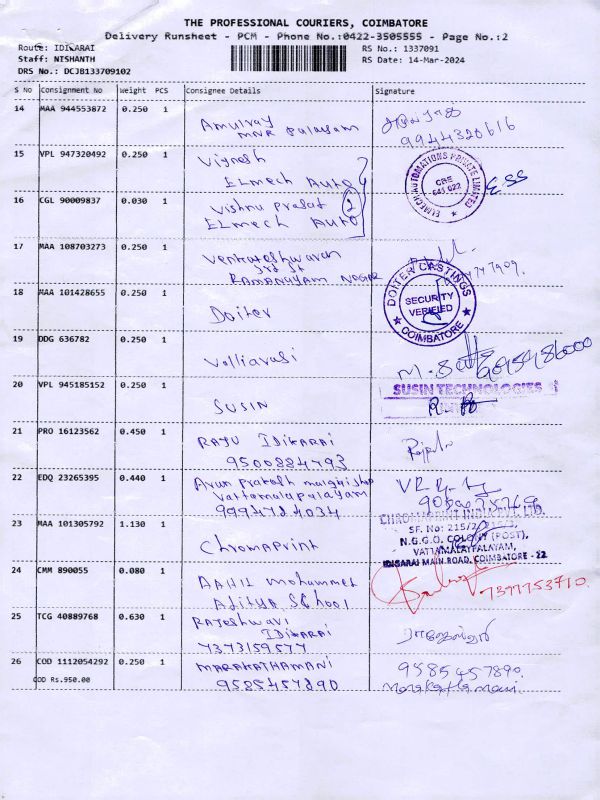 THE PROFESSIONAL COURIERS, COIMBATORE
Delivery Runsheet - PCM - Phone No.:0422-3505555 - Page No.:2
Route: IDIKARAI
Staff: NISHANTH
DRS No.: DCJB133709102
RS No.: 1337091
RS Date: 14-Mar-2024
S No Consignment No Weight PCS Consignee Details Signature
14 MAA 944553872 0.250 1
Amulraj
MNR palayam
9944320616
15 VPL 947320492 0.250 1
Vignesh
ELmech Auto
ELMECH AUTOMATIONS PRIVATE LIMITED
CBE
641 022
16 CGL 90009837 0.030 1
Vishnu prasat
ELmech Auto
2
17 MAA 108703273 0.250 1
Venkateshwaran
3rd st
RAMANUYAM NAGAR
18 MAA 101428655 0.250 1
Doiter
DOITER CASTINGS
SECURITY
VERIFIED
COIMBATORE
19 DDG 636782 0.250 1
Valliarasi
20 VPL 945185152 0.250 1
SUSIN
SUSIN TECHNOLOGIES
21 PRO 16123562 0.450 1
RAJU IDIKARAI
9500884793
22 EDQ 23265395 0.440 1
Arun prakash
vattamalapalayam
9994784034
23 MAA 101305792 1.130 1
Chromaprint
CHROMAPRINT INDIA PVT. LTD.
SF. No: 215/2
N.G.G.O. COLONY (POST),
VATTAMALAYPALAYAM,
IDIGARAI MAIN ROAD, COIMBATORE - 22
24 CMM 890055 0.080 1
AAHIL mohammet
Aditya School
7397753710
25 TCG 40889768 0.630 1
RAJeshwari
IDikarai
7373159577
ராஜேஸ்வரி
26 COD 1112054292 0.250 1
COD Rs.950.00
MARAKATHAMANI
9585457890
9585457890
Marakathamani